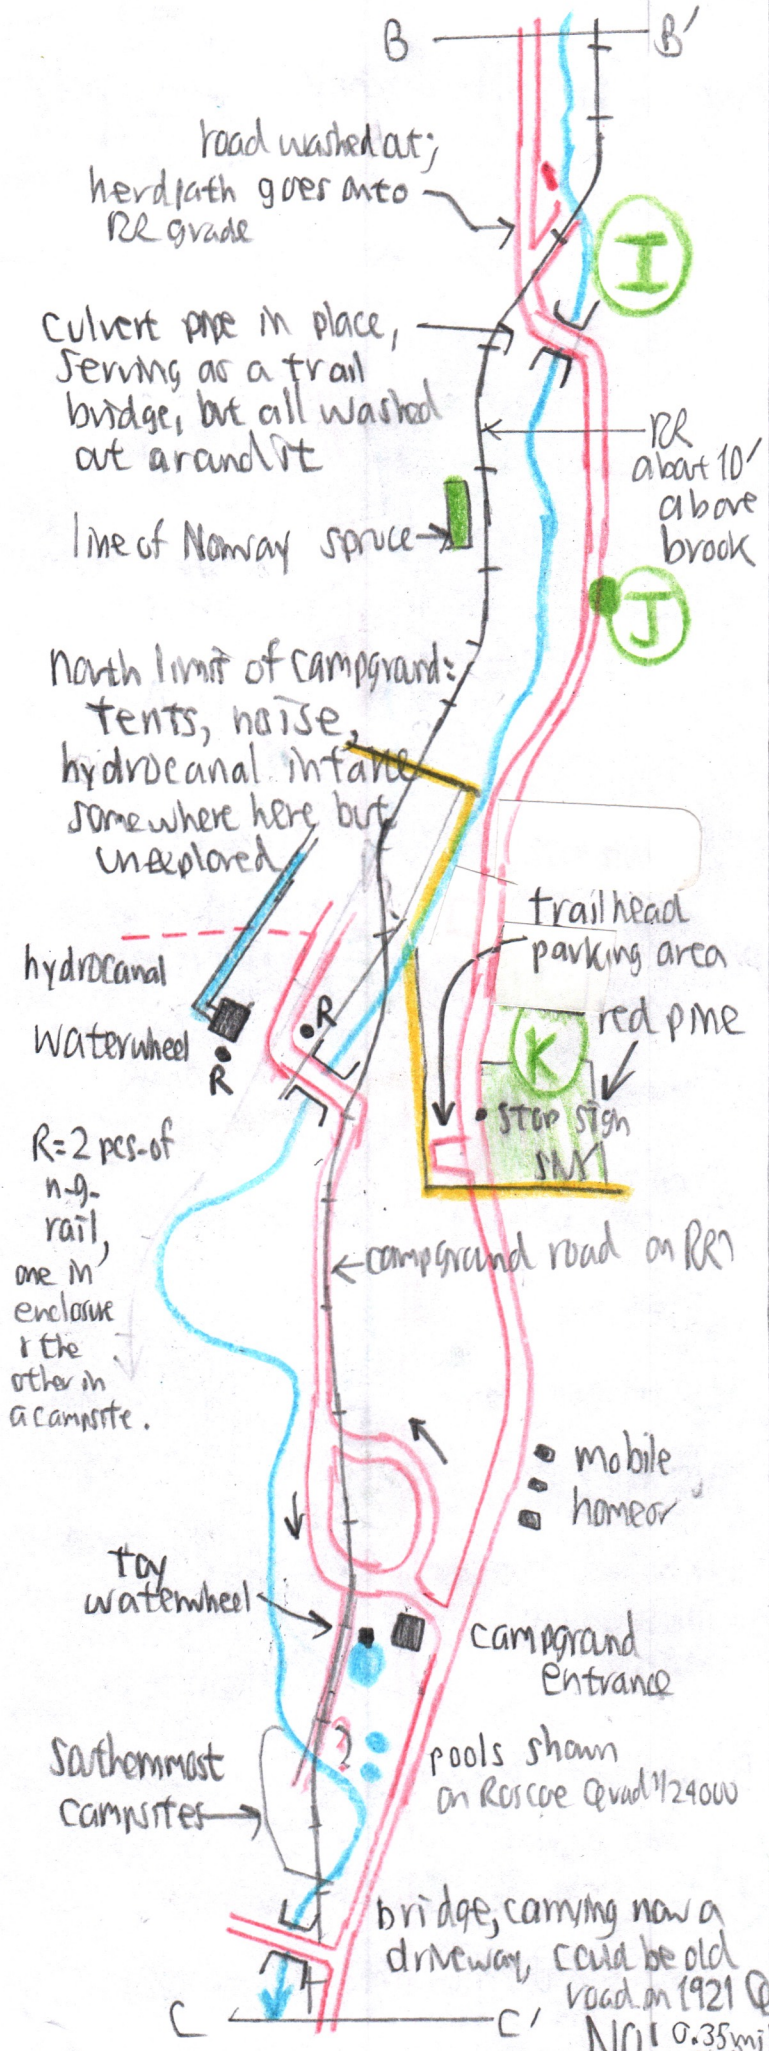 B B'
road washed out;
herdpath goes onto
RR grade
I
culvert pipe in place,
serving as a trail
bridge, but all washed
out around it
RR
about 10'
above
brook
line of Norway spruce
J
north limit of campground:
tents, noise,
hydrocanal intake
somewhere here but
unexplored
trailhead
parking area
hydrocanal
R
red pine
K
waterwheel
R
stop sign
R=2 pcs. of
n.g.
rail,
one in
enclosure
& the
other in
a campsite.
campground road on RR?
mobile
homes
toy
waterwheel
campground
entrance
?
southernmost
campsites
pools shown
on Roscoe Quad 1/24000
bridge, carrying now a
driveway, could be old
road on 1921 Q
C C'
NO! 0.35mi